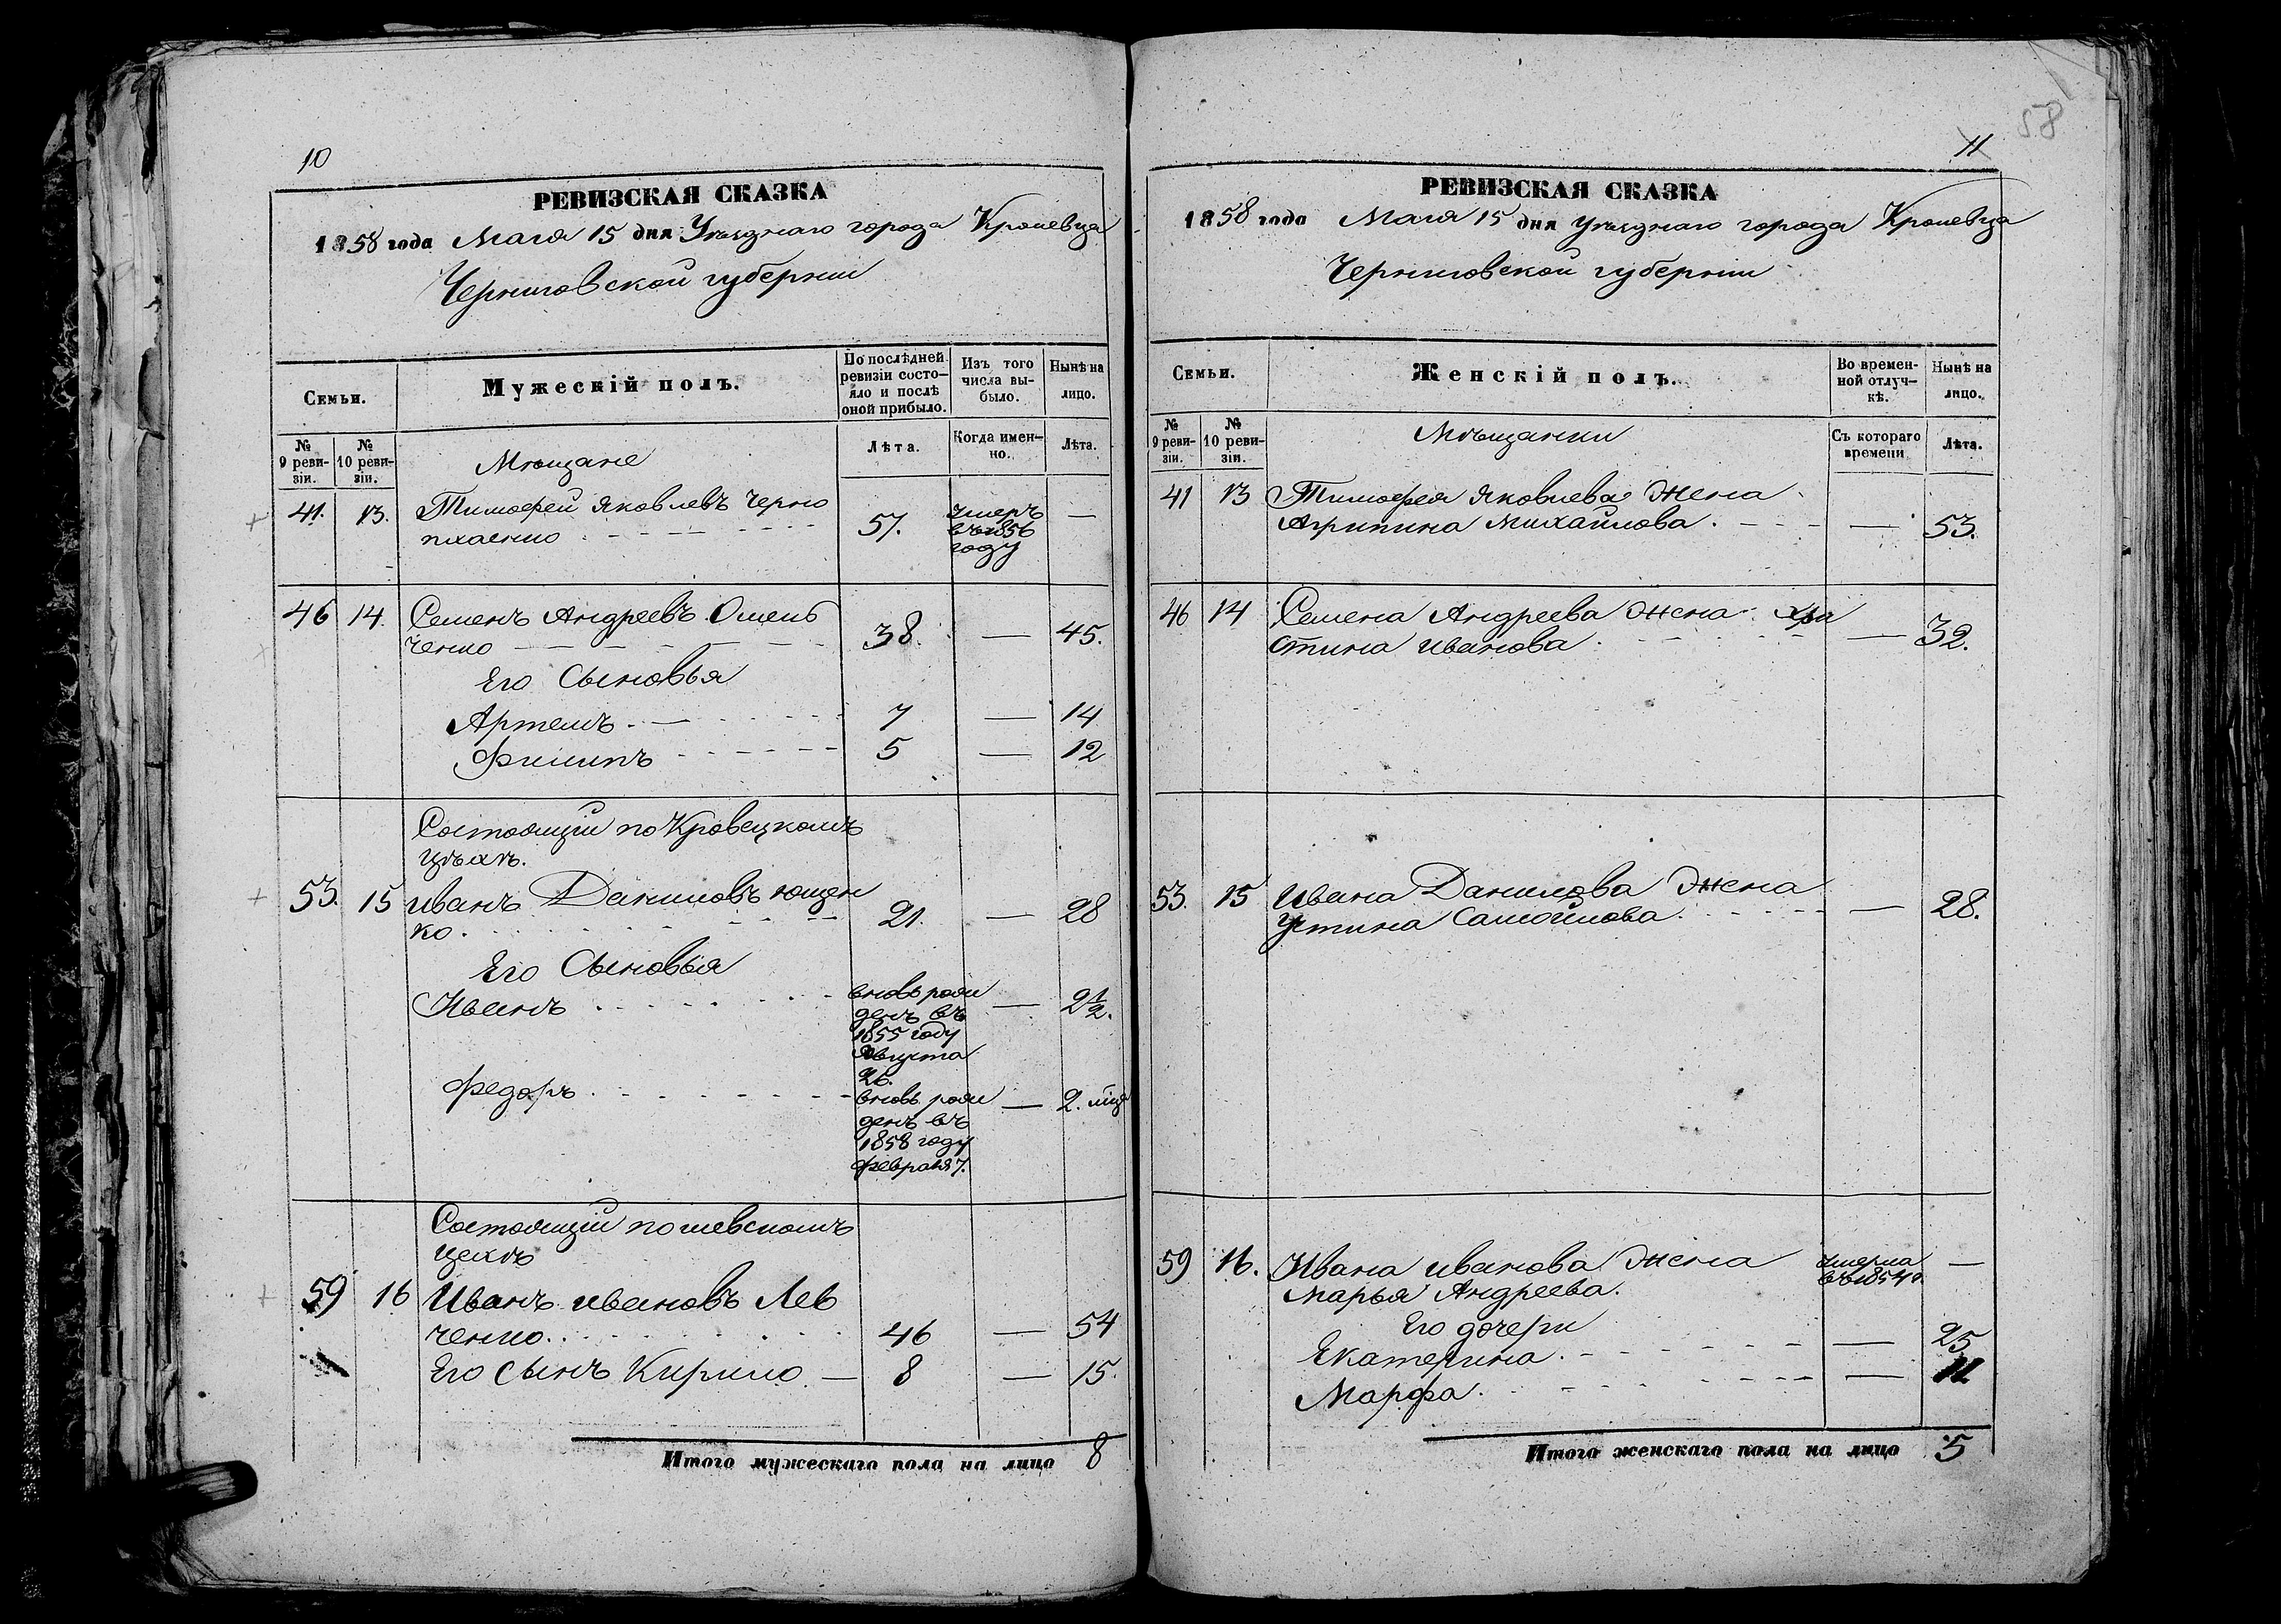 10
РЕВИЗСКАЯ СКАЗКА
1858 года Мая 15 дня Уѣзднаго города Кролевца
Черниговской губерніи
Семьи.
Мужескій полъ.
По послѣдней
ревизіи состо-
яло и послѣ
оной прибыло.
Изъ того
числа вы-
было.
Нынѣ на
лицо.
№
9 реви-
зіи.
№
10 реви-
зіи.
Мѣщане
Лѣта.
Когда имен-
но.
Лѣта.
41. 13. Тимофей Яковлевъ Черно
плаенко 57. умеръ
въ 1856
году —
46 14. Семенъ Андреевъ Омель
ченко 38. — 45.
Его Сыновья
Артемъ 7 — 14
Филипъ 5 — 12
Состоящіи по Кравецкомъ
цѣхѣ.
53. 15 Иванъ Даниловъ Ющен
ко. 21. — 28
Его Сыновья
Иванъ вновь рож
денъ въ
1855 году
Августа
26. — 2½.
Федоръ вновь рож
денъ въ
1858 году
февраля 7. — 2. мца
Состоящіи по шевскомъ
цехѣ
59 16 Иванъ Ивановъ Лев
ченко. 46 — 54
Его Сынъ Кирило — 8 — 15.
Итого мужескаго пола на лицо 8
58
11
РЕВИЗСКАЯ СКАЗКА
1858 года Мая 15 дня Уѣзднаго города Кролевца
Черниговской губерніи
Семьи.
Женскій полъ.
Во времен-
ной отлуч-
кѣ.
Нынѣ на
лицо.
№
9 реви-
зіи.
№
10 реви-
зіи.
Мѣщанки
Съ котораго
времени
Лѣта.
41 13 Тимофея Яковлева Жена
Агрипина Михайлова. — 53.
46 14 Семена Андреева Жена Хри
стина Иванова — 32.
53. 15 Ивана Данилова Жена
Устина Самойлова. — 28.
59 16. Ивана Иванова Жена
Марья Андреева. умерла
въ 1854 г. —
Его дочери
Екатерина. — 25
Марфа. — 11
Итого женскаго пола на лицо 5